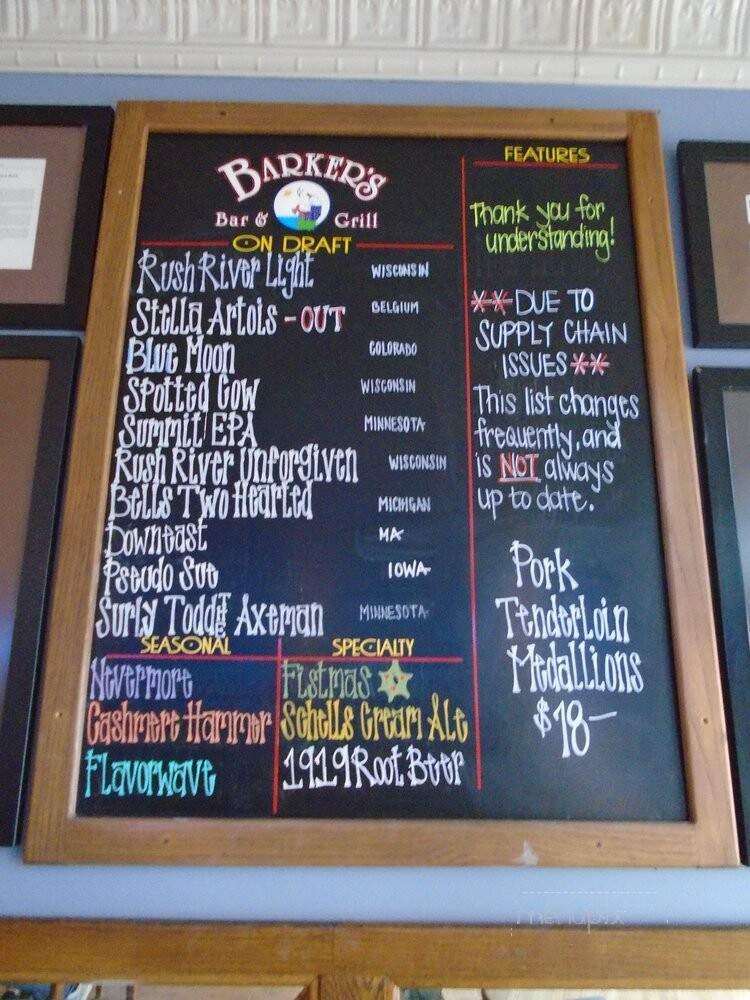 BARKER'S
Bar & Grill
ON DRAFT
Rush River Light WISCONSIN
Stella Artois - OUT BELGIUM
Blue Moon COLORADO
Spotted Cow WISCONSIN
Summit EPA MINNESOTA
Rush River Unforgiven WISCONSIN
Bells Two Hearted MICHIGAN
Downeast MA
Pseudo Sue IOWA
Surly Todd the Axeman MINNESOTA
SEASONAL
Nevermore
Cashmere Hammer
Flavorwave
SPECIALTY
Fistmas
Schells Cream Ale
1919 Root Beer
FEATURES
Thank you for
understanding!
**DUE TO
SUPPLY CHAIN
ISSUES**
This list changes
frequently, and
is NOT always
up to date.
Pork
Tenderloin
Medallions
$18-
menupix